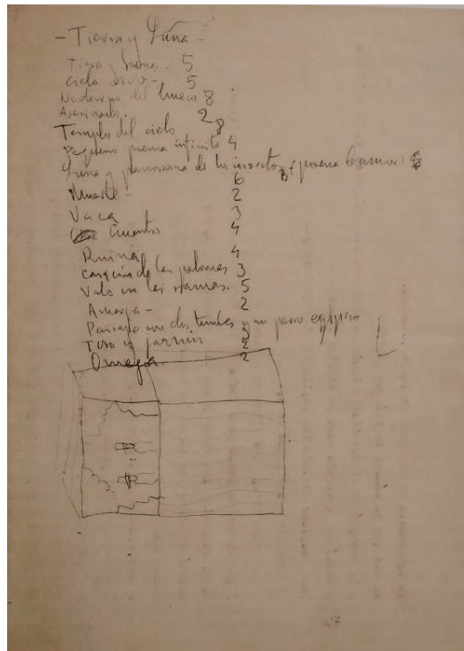 - Tierra y Luna -
Tierra y luna - 5
Cielo vivo - 5
Nocturno del hueco 8
Asesinado. 2
Templo del cielo 8
Pequeño poema infinito 4
Luna y panorama de los insectos, poema de amor
6
Muerte - 2
Vaca 3
Cuento 4
Ruina 4
Canción de las palomas 3
Vals en las ramas. 5
Amarga - 2
Paisaje con dos tumbas y un perro egipcio
Toro y jazmín 2
Omega 2